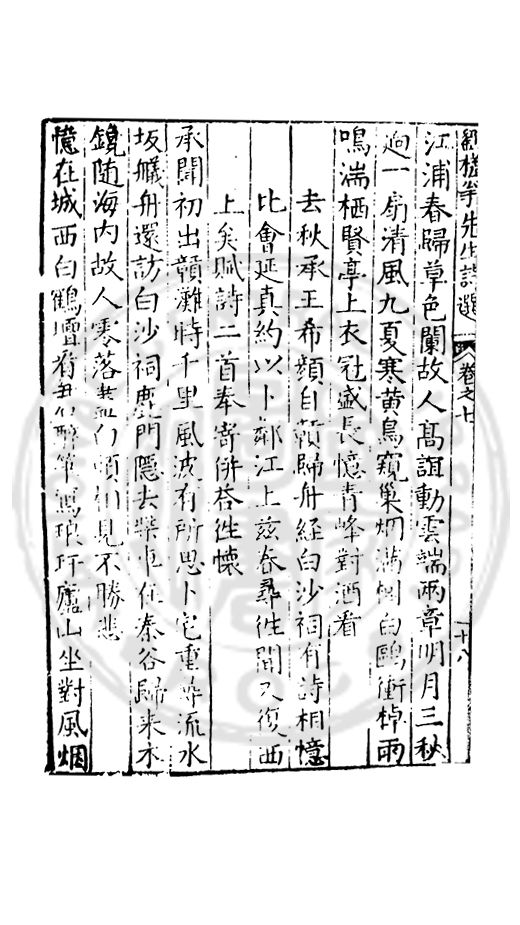 翁先生詩選 卷之七 十八
江浦春歸草色闌故人髙誼動雲端兩章明月三秋
逈一扇清風九夏寒黄鳥窺巢烟滿樹白鷗衝棹雨
鳴湍栖賢亭上衣冠盛長憶青峰對酒看
去秋承王希顔自贛歸舟經白沙祠有詩相憶
比會延真約以卜鄰江上兹春尋徃聞又復西
上矣賦詩二首奉寄併荅徃懷
承聞初出贛灘時千里風波有所思卜宅重尋流水
坂艤舟還訪白沙祠鹿門隱去柴車在秦谷歸来水
鏡随海内故人零落盡白頭相見不勝悲
憶在城西白鶴壇 君醉筆寫琅玕廬山坐對風烟